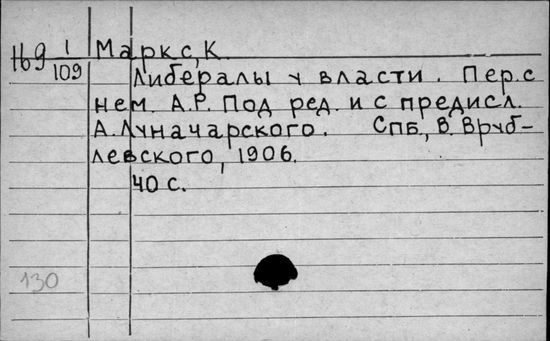 169 1/109 Маркс, К.
Либералы у власти. Пер. с
нем. А.Р. Под ред. и с предисл.
А. Луначарского. СПБ., В. Вруб-
левского, 1906.
40 с.
130